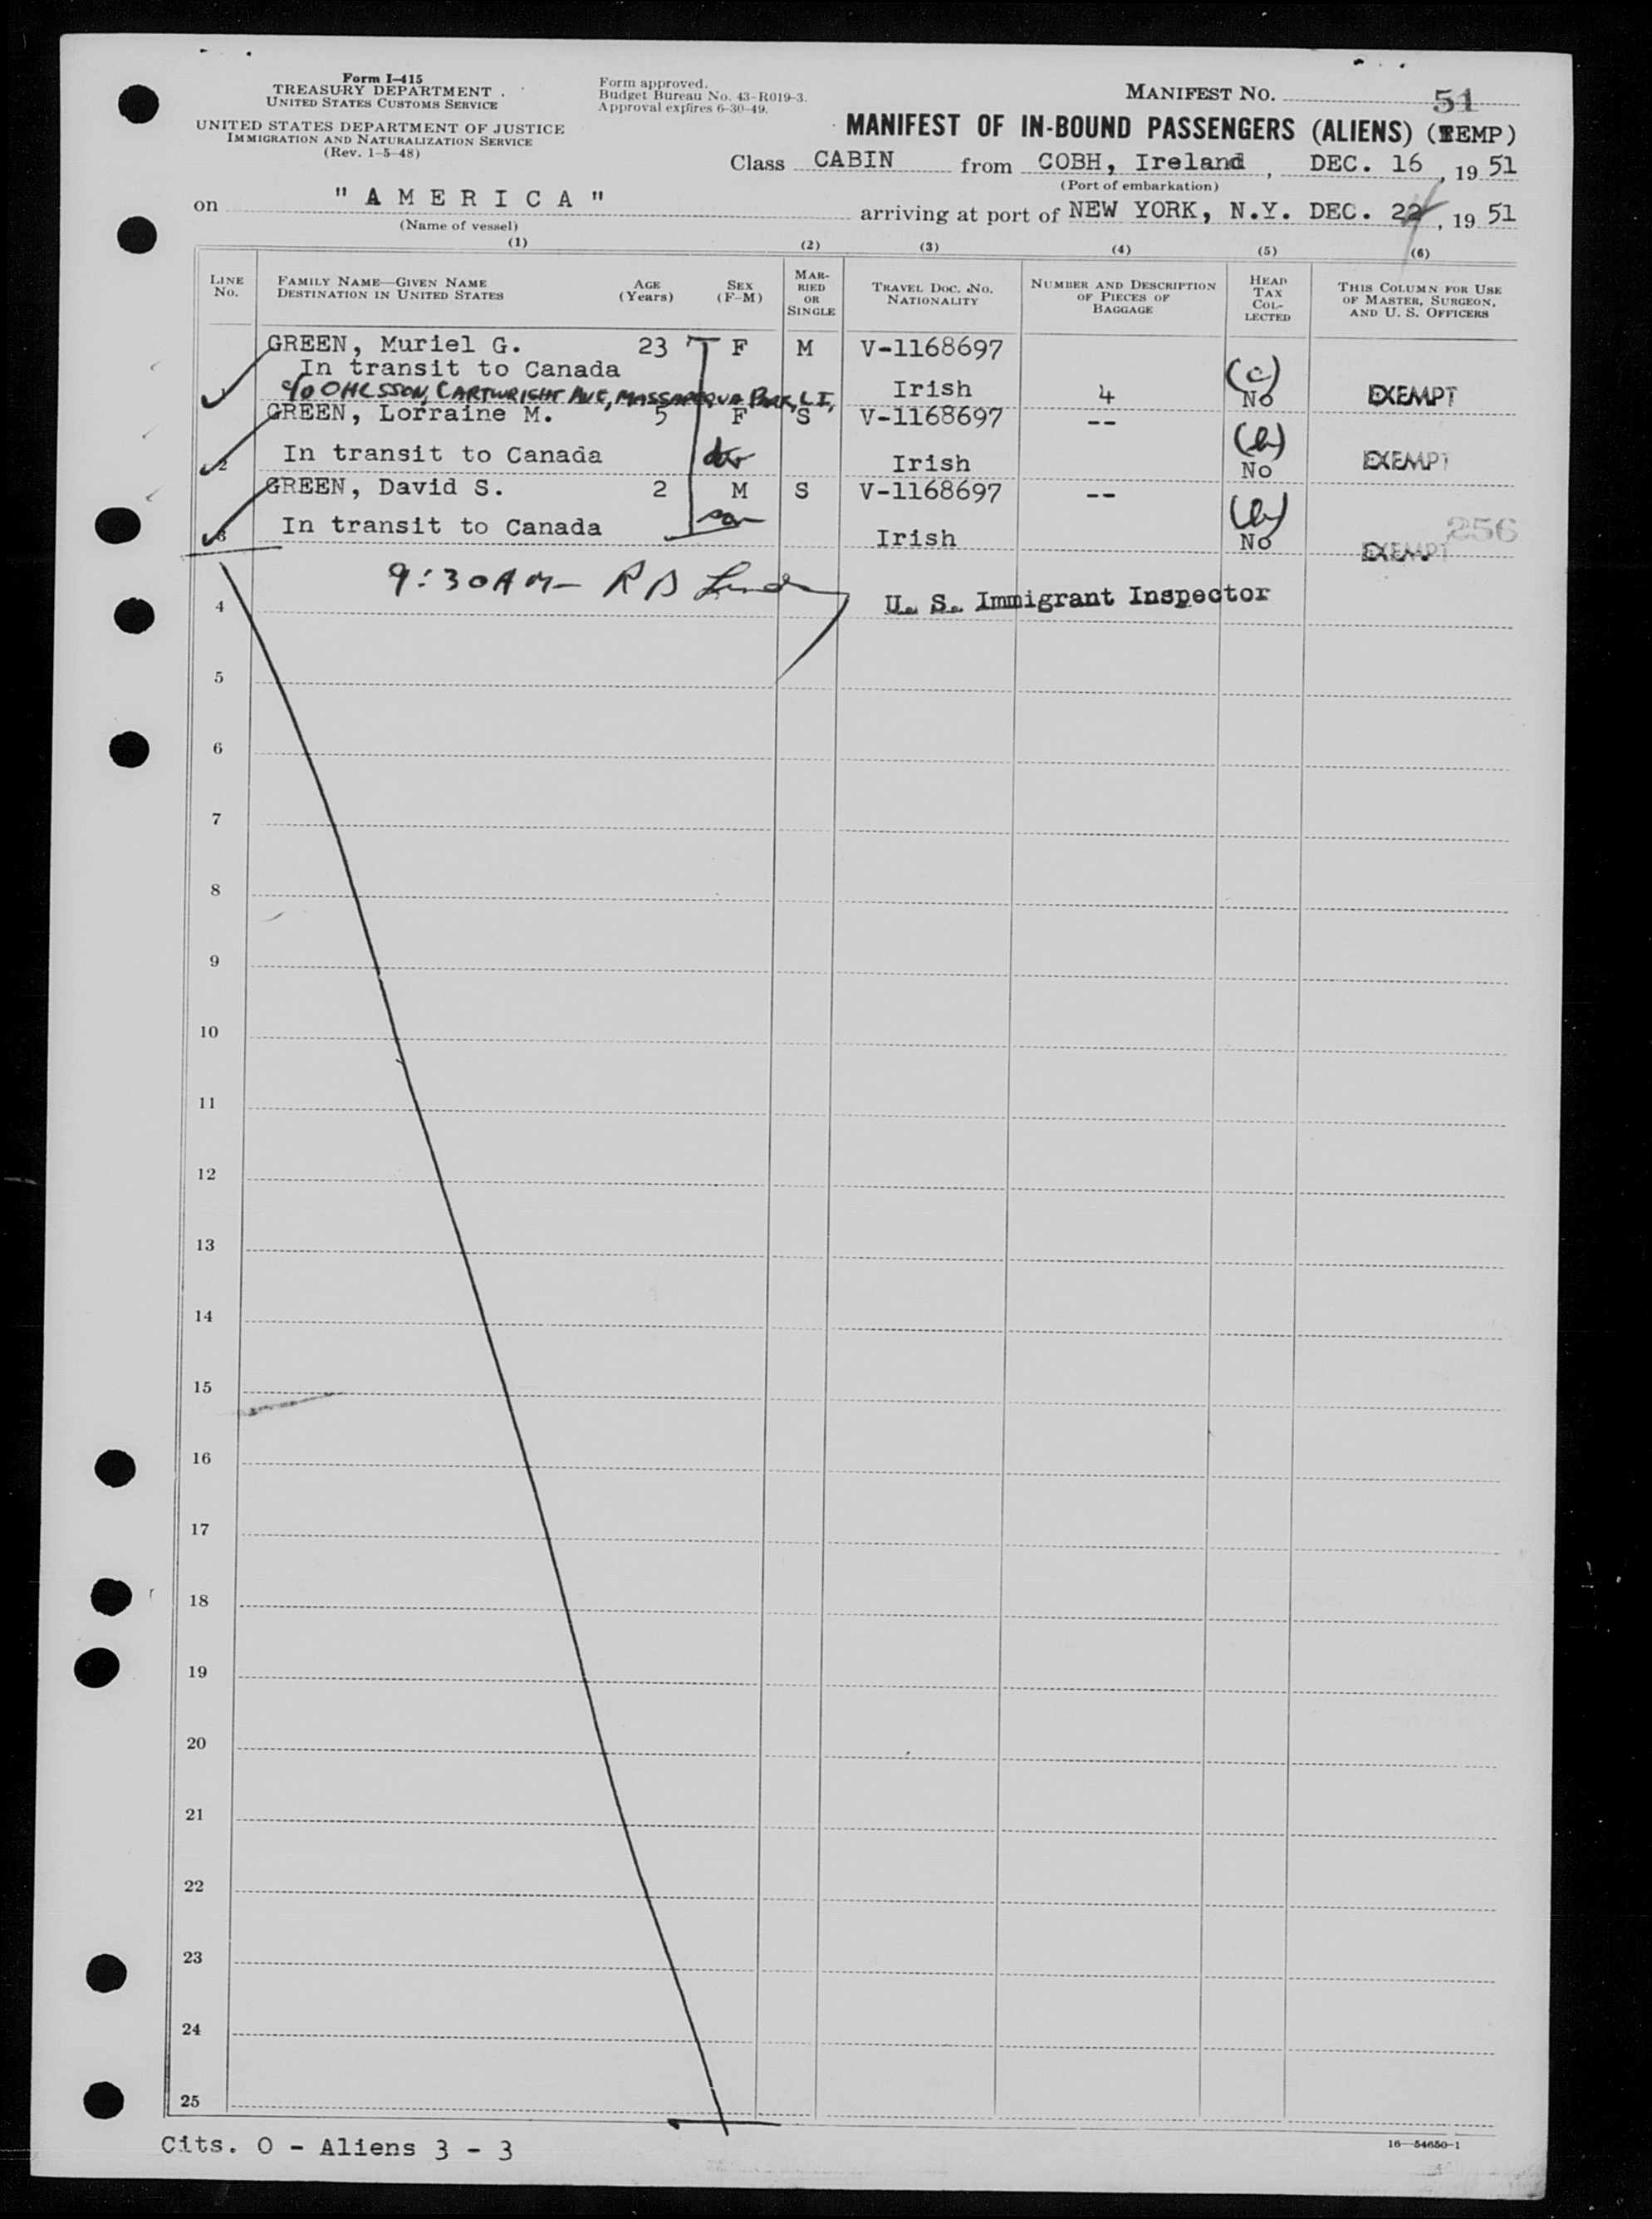 Form I-415
TREASURY DEPARTMENT
UNITED STATES CUSTOMS SERVICE
UNITED STATES DEPARTMENT OF JUSTICE
IMMIGRATION AND NATURALIZATION SERVICE
(Rev. 1-5-48)
Form approved.
Budget Bureau No. 43-R019-3.
Approval expires 6-30-49.
MANIFEST NO. 51
MANIFEST OF IN-BOUND PASSENGERS (ALIENS) (TEMP)
Class CABIN from COBH, Ireland, DEC. 16, 1951
(Port of embarkation)
on "AMERICA" arriving at port of NEW YORK, N.Y. DEC. 22, 1951
(Name of vessel)
(1) (2) (3) (4) (5) (6)
LINE NO.
FAMILY NAME—GIVEN NAME
DESTINATION IN UNITED STATES
AGE (Years)
SEX (F-M)
MARRIED OR SINGLE
TRAVEL DOC. NO. NATIONALITY
NUMBER AND DESCRIPTION OF PIECES OF BAGGAGE
HEAD TAX COLLECTED
THIS COLUMN FOR USE OF MASTER, SURGEON, AND U. S. OFFICERS
GREEN, Muriel G. 23 F M V-1168697
In transit to Canada (c)
1 c/o OHLSSON, CARTWRIGHT AVE, MASSAPEQUA PARK, L.I. Irish 4 No EXEMPT
GREEN, Lorraine M. 5 F S V-1168697 --
2 In transit to Canada Irish No EXEMPT
GREEN, David S. 2 M S V-1168697 --
3 In transit to Canada son Irish No EXEMPT 256
9:30 AM — R B
4 U. S. Immigrant Inspector
5
6
7
8
9
10
11
12
13
14
15
16
17
18
19
20
21
22
23
24
25
Cits. 0 - Aliens 3 - 3
16—54650-1